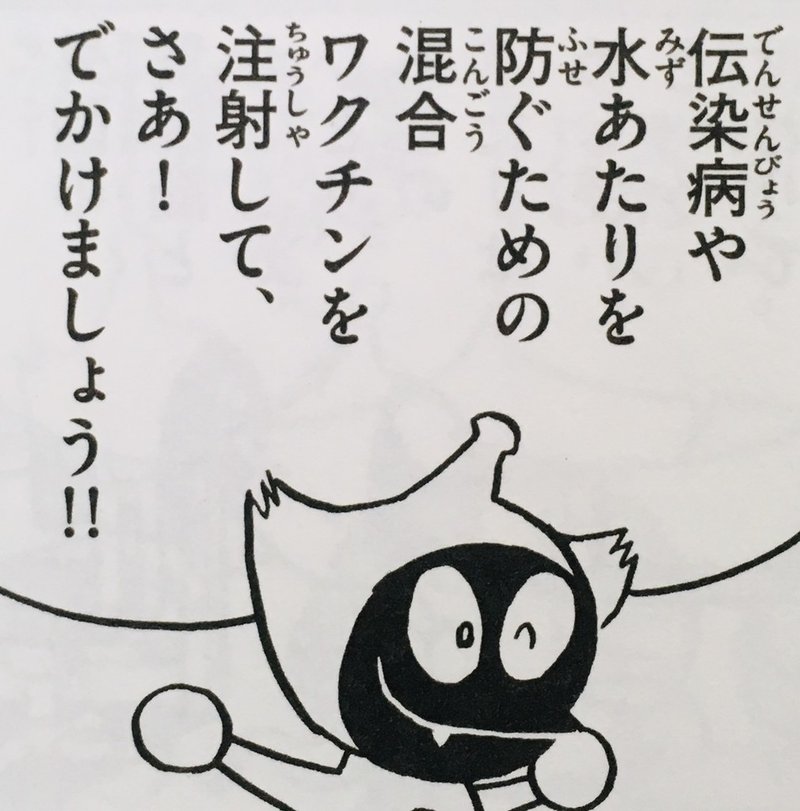 伝染病や
水あたりを
防ぐための
混合
ワクチンを
注射して、
さあ！
でかけましょう!!
でんせんびょう
みず
ふせ
こんごう
ちゅうしゃ